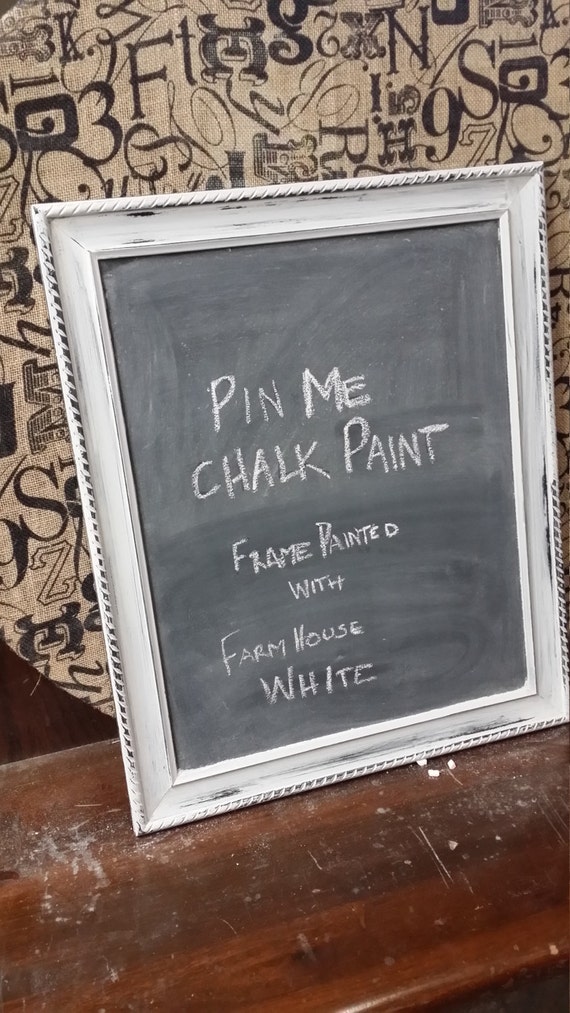 PIN ME
CHALK PAINT
FRAME PAINTED
WITH
FARM HOUSE
WHITE